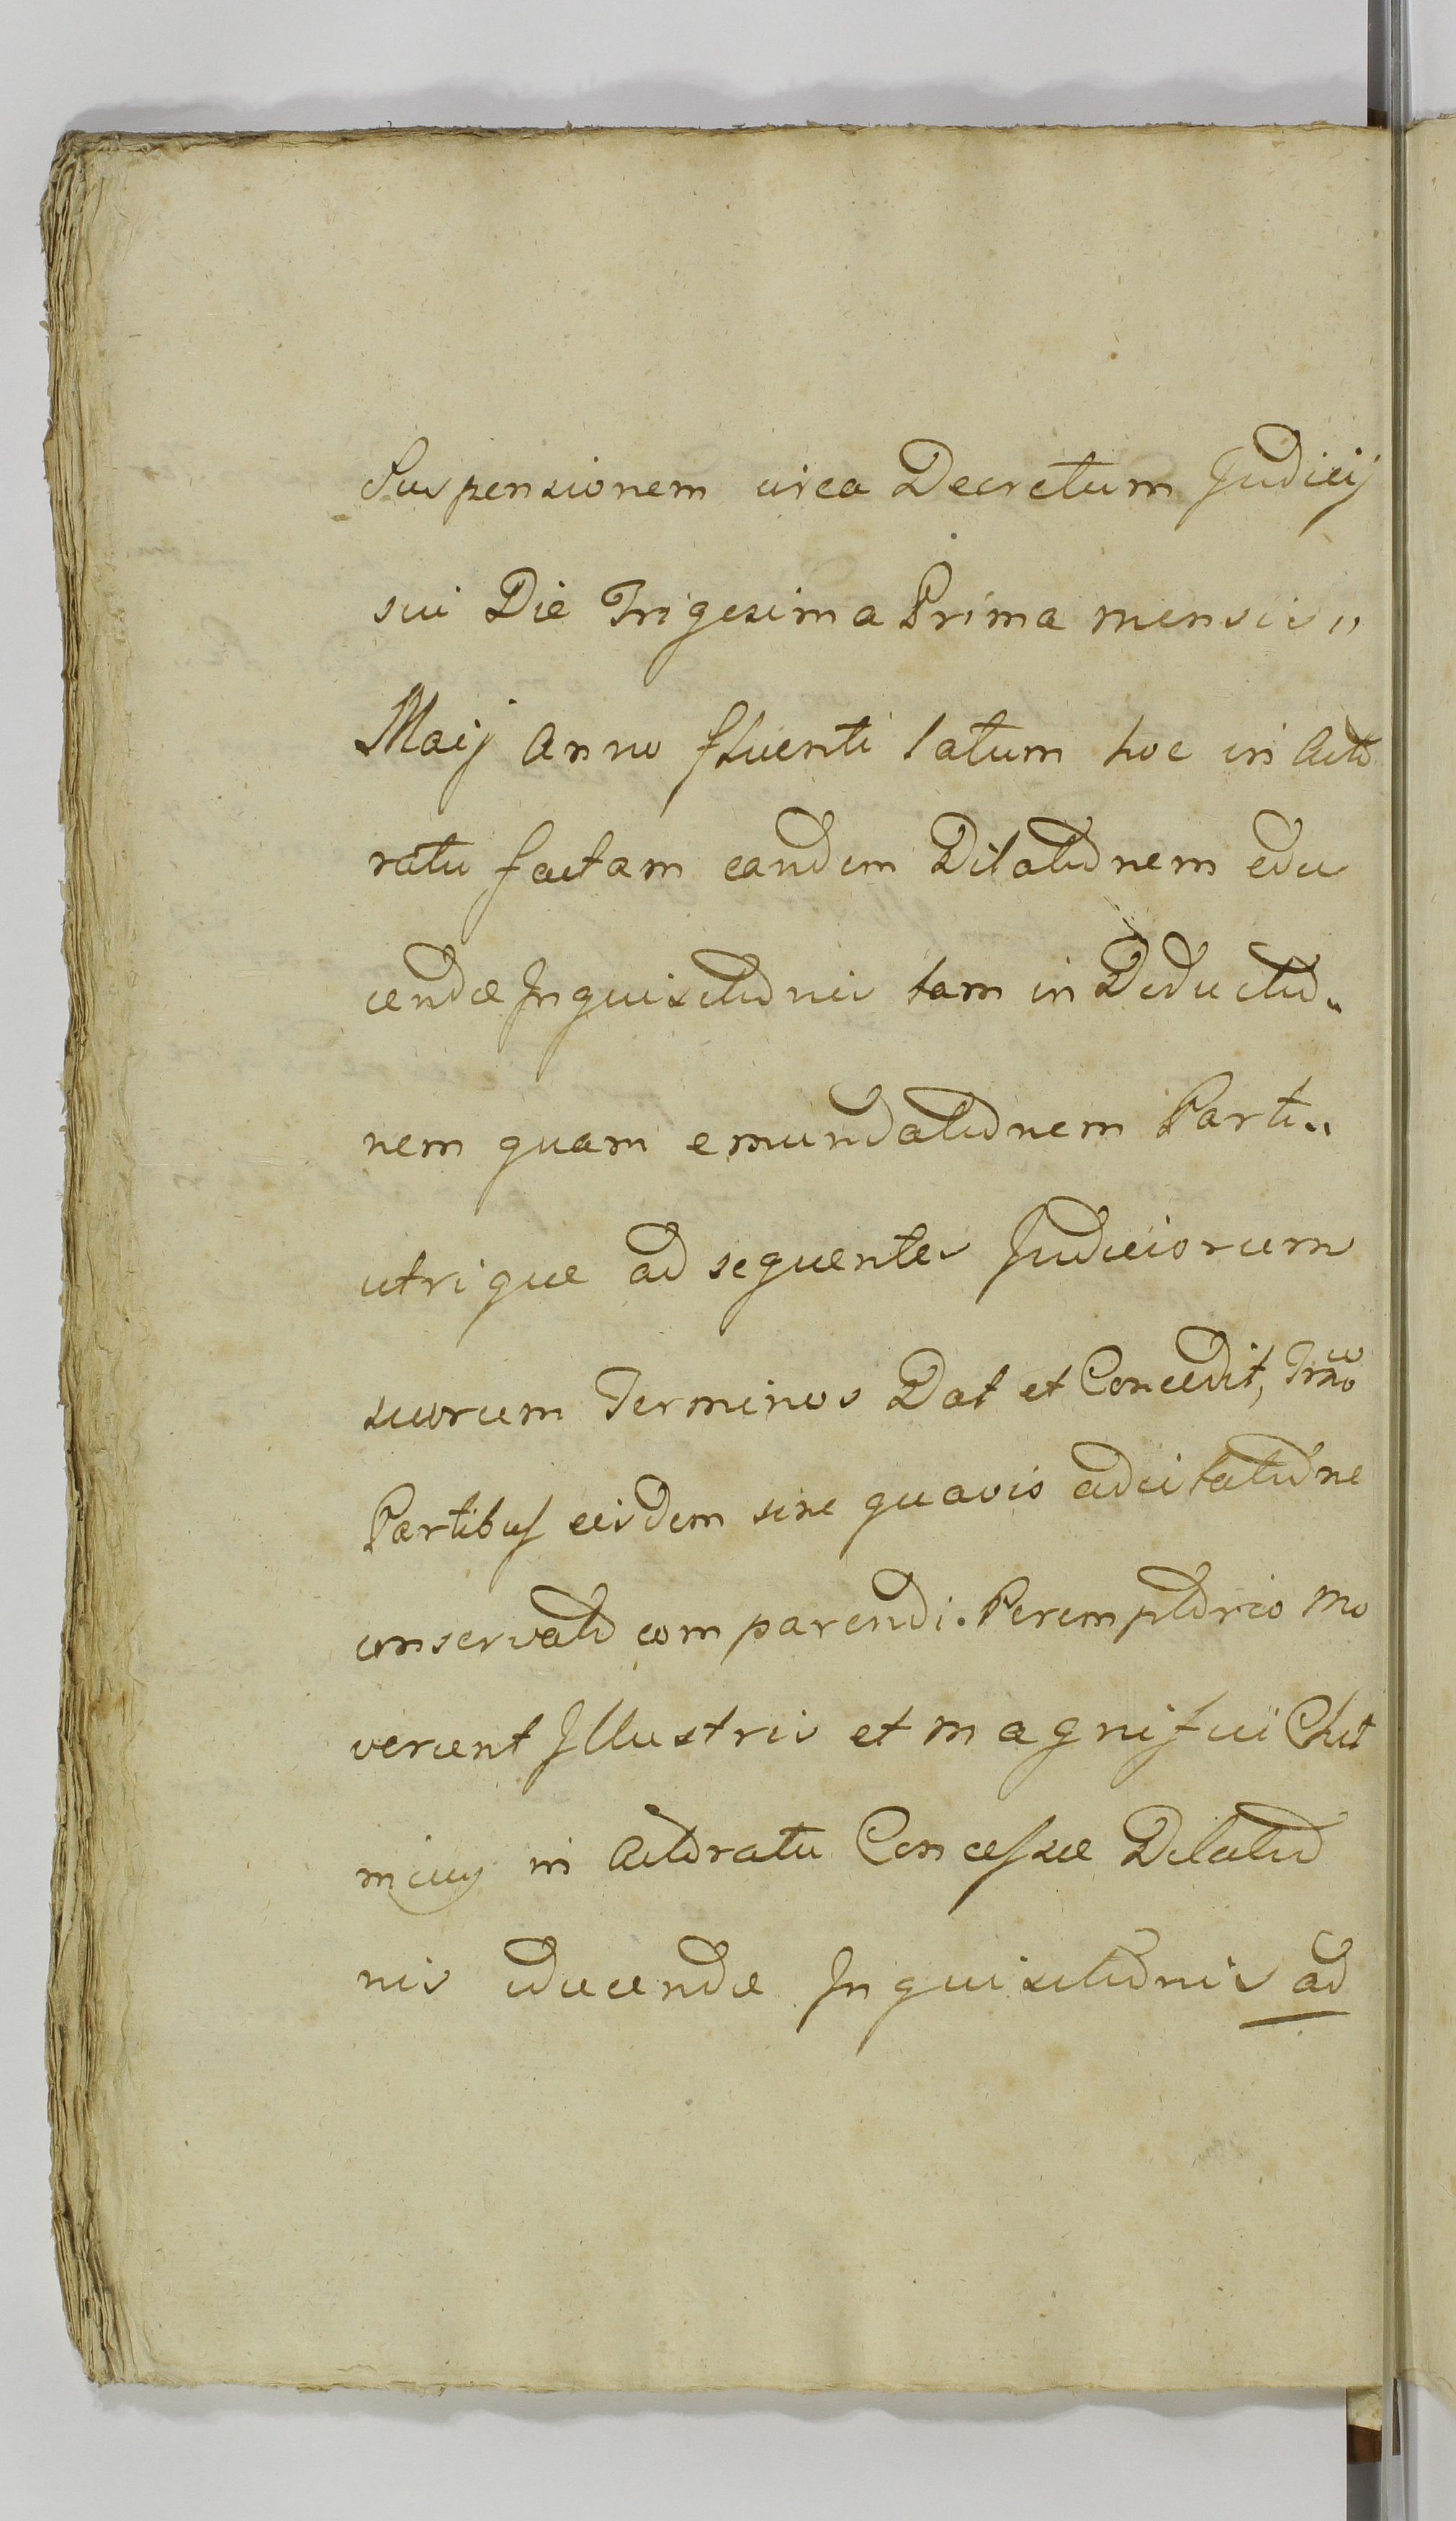 Suspensionem circa Decretum Judicij
sui Die Trigesima Prima mensis„
Maij Anno fluenti latum hoc in Acto
ratu factam eandem Dilationem edu
cendæ Inquisitionis tam in Deductio„
nem quam emundationem Parti„
utrique ad sequentes Judiciorum
suorum Terminos Dat et Concedit, Trmo
Partibus eisdem sine quavis adcitatione
conservato comparendi. Peremptorio Mo
verunt Illustris et magnifici
in Actoratu Concessæ Dilatio
nis educendæ Inquisitionis ad